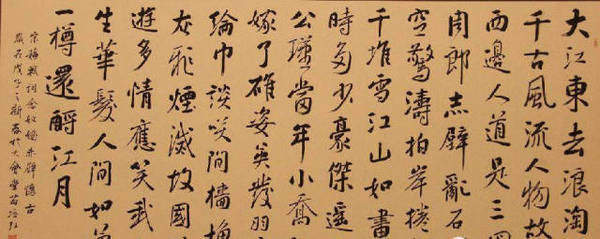 大江東去浪淘
千古風流人物故
西邊人道是三
周郎赤壁亂石
空驚濤拍岸捲
千堆雪江山如畫
時多少豪傑遙
公瑾當年小喬
嫁了雄姿英發羽
綸巾談笑間檣櫓
灰飛煙滅故國
遊多情應笑我
生華髮人間如夢
一樽還酹江月
宋蘇軾詞念奴嬌赤壁懷古
歲在戊子之新春於大會堂